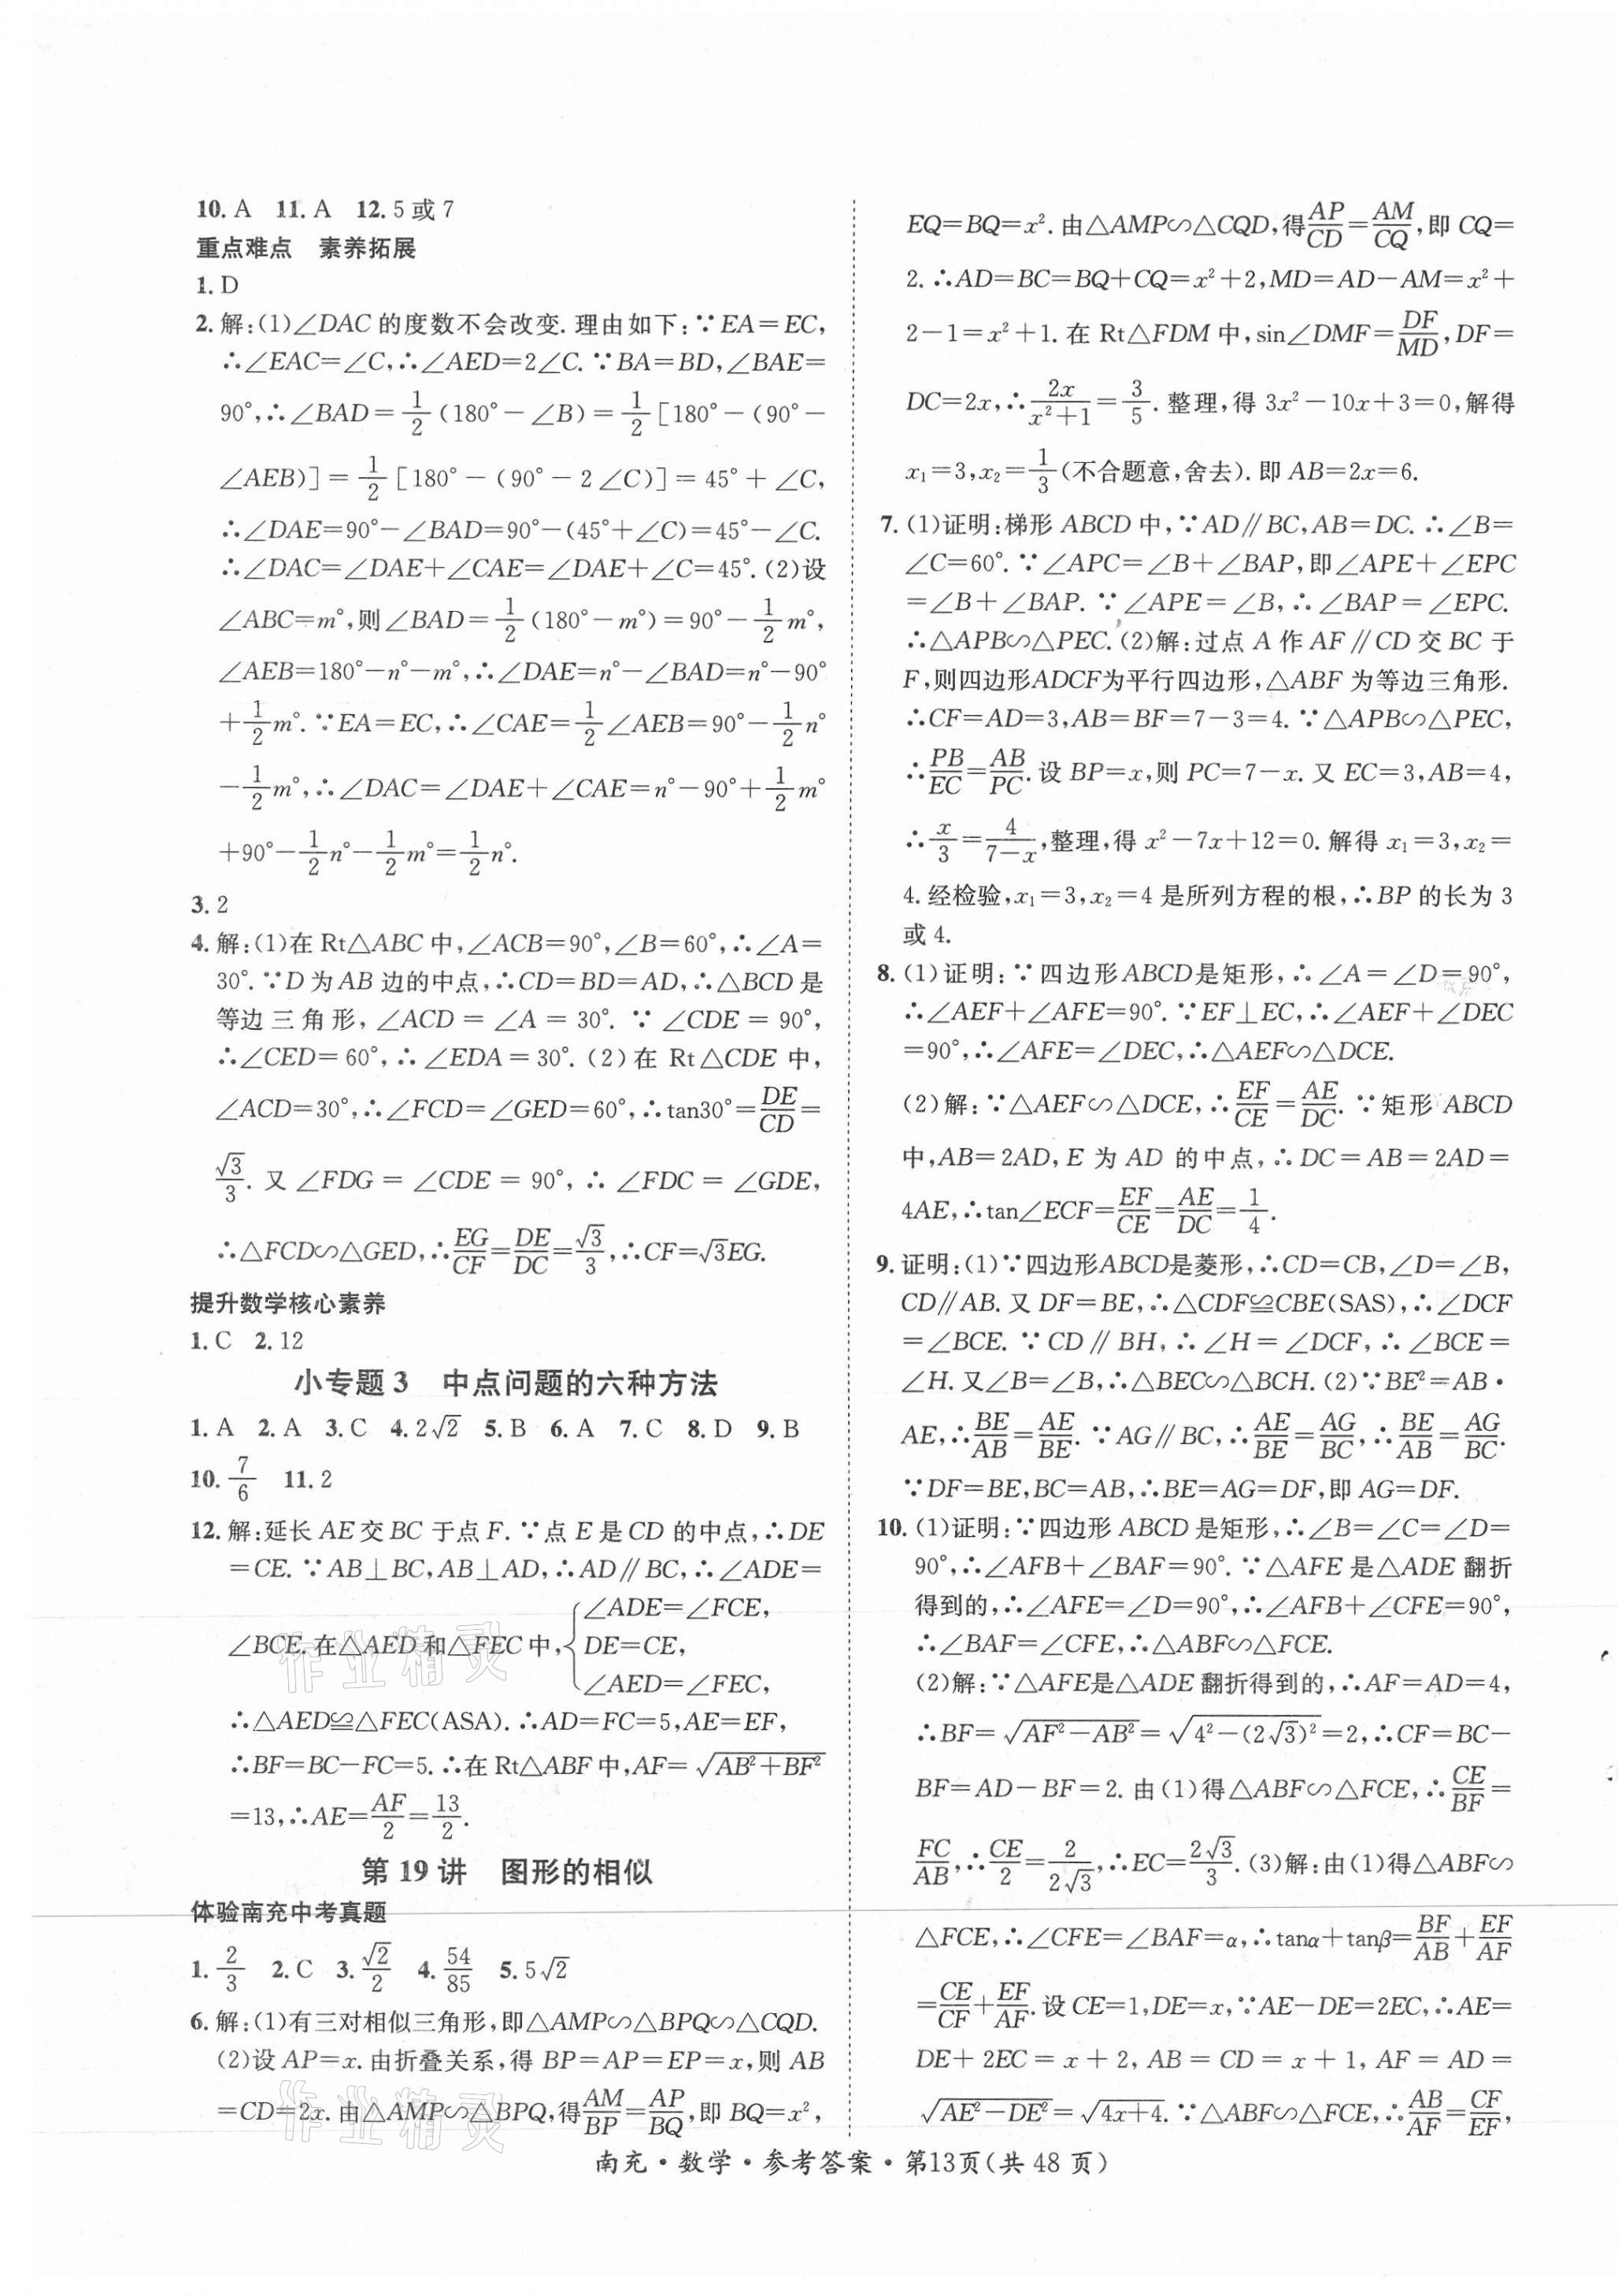 10. A 11. A 12. 5 或 7
重点难点 素养拓展
1. D
2. 解:(1)∠DAC 的度数不会改变. 理由如下:∵EA=EC,
∴∠EAC=∠C,∴∠AED=2∠C. ∵BA=BD,∠BAE=
90°,∴∠BAD=1/2(180°-∠B)=1/2[180°-(90°-
∠AEB)]=1/2[180°-(90°-2∠C)]=45°+∠C,
∴∠DAE=90°-∠BAD=90°-(45°+∠C)=45°-∠C.
∴∠DAC=∠DAE+∠CAE=∠DAE+∠C=45°. (2)设
∠ABC=m°,则∠BAD=1/2(180°-m°)=90°-1/2m°,
∠AEB=180°-n°-m°,∴∠DAE=n°-∠BAD=n°-90°
+1/2m°. ∵EA=EC,∴∠CAE=1/2∠AEB=90°-1/2n°
-1/2m°,∴∠DAC=∠DAE+∠CAE=n°-90°+1/2m°
+90°-1/2n°-1/2m°=1/2n°.
3. 2
4. 解:(1)在 Rt△ABC 中,∠ACB=90°,∠B=60°,∴∠A=
30°. ∵D 为 AB 边的中点,∴CD=BD=AD,∴△BCD 是
等边三角形,∠ACD=∠A=30°. ∵∠CDE=90°,
∴∠CED=60°,∴∠EDA=30°. (2)在 Rt△CDE 中,
∠ACD=30°,∴∠FCD=∠GED=60°,∴tan30°=DE/CD=
√3/3. 又∠FDG=∠CDE=90°,∴∠FDC=∠GDE,
∴△FCD∽△GED,∴EG/CF=DE/DC=√3/3,∴CF=√3EG.
提升数学核心素养
1. C 2. 12
小专题 3 中点问题的六种方法
1. A 2. A 3. C 4. 2√2 5. B 6. A 7. C 8. D 9. B
10. 7/6 11. 2
12. 解:延长 AE 交 BC 于点 F. ∵点 E 是 CD 的中点,∴DE
=CE. ∵AB⊥BC,AB⊥AD,∴AD∥BC,∴∠ADE=
∠BCE. 在△AED 和△FEC 中,{∠ADE=∠FCE,
DE=CE,
∠AED=∠FEC,
∴△AED≌△FEC(ASA). ∴AD=FC=5,AE=EF,
∴BF=BC-FC=5. ∴在 Rt△ABF 中,AF=√(AB²+BF²)
=13,∴AE=AF/2=13/2.
第 19 讲 图形的相似
体验南充中考真题
1. 2/3 2. C 3. √2/2 4. 54/85 5. 5√2
6. 解:(1)有三对相似三角形,即△AMP∽△BPQ∽△CQD.
(2)设 AP=x. 由折叠关系,得 BP=AP=EP=x,则 AB
=CD=2x. 由△AMP∽△BPQ,得AM/BP=AP/BQ,即 BQ=x²,
EQ=BQ=x². 由△AMP∽△CQD,得AP/CD=AM/CQ,即 CQ=
2. ∴AD=BC=BQ+CQ=x²+2,MD=AD-AM=x²+
2-1=x²+1. 在 Rt△FDM 中,sin∠DMF=DF/MD,DF=
DC=2x,∴2x/(x²+1)=3/5. 整理,得 3x²-10x+3=0,解得
x₁=3,x₂=1/3(不合题意,舍去). 即 AB=2x=6.
7. (1)证明:梯形 ABCD 中,∵AD∥BC,AB=DC. ∴∠B=
∠C=60°. ∵∠APC=∠B+∠BAP,即∠APE+∠EPC
=∠B+∠BAP. ∵∠APE=∠B,∴∠BAP=∠EPC.
∴△APB∽△PEC. (2)解:过点 A 作 AF∥CD 交 BC 于
F,则四边形ADCF为平行四边形,△ABF 为等边三角形.
∴CF=AD=3,AB=BF=7-3=4. ∵△APB∽△PEC,
∴PB/EC=AB/PC. 设 BP=x,则 PC=7-x. 又 EC=3,AB=4,
∴x/3=4/(7-x),整理,得 x²-7x+12=0. 解得 x₁=3,x₂=
4. 经检验,x₁=3,x₂=4 是所列方程的根,∴BP 的长为 3
或 4.
8. (1)证明:∵四边形 ABCD 是矩形,∴∠A=∠D=90°,
∴∠AEF+∠AFE=90°. ∵EF⊥EC,∴∠AEF+∠DEC
=90°,∴∠AFE=∠DEC,∴△AEF∽△DCE.
(2)解:∵△AEF∽△DCE,∴EF/CE=AE/DC. ∵矩形 ABCD
中,AB=2AD,E 为 AD 的中点,∴DC=AB=2AD=
4AE,∴tan∠ECF=EF/CE=AE/DC=1/4.
9. 证明:(1)∵四边形ABCD是菱形,∴CD=CB,∠D=∠B,
CD∥AB. 又 DF=BE,∴△CDF≌CBE(SAS),∴∠DCF
=∠BCE. ∵CD∥BH,∴∠H=∠DCF,∴∠BCE=
∠H. 又∠B=∠B,∴△BEC∽△BCH. (2)∵BE²=AB·
AE,∴BE/AB=AE/BE. ∵AG∥BC,∴AE/BE=AG/BC,∴BE/AB=AG/BC.
∵DF=BE,BC=AB,∴BE=AG=DF,即 AG=DF.
10. (1)证明:∵四边形 ABCD 是矩形,∴∠B=∠C=∠D=
90°,∴∠AFB+∠BAF=90°. ∵△AFE 是△ADE 翻折
得到的,∴∠AFE=∠D=90°,∴∠AFB+∠CFE=90°,
∴∠BAF=∠CFE,∴△ABF∽△FCE.
(2)解:∵△AFE是△ADE 翻折得到的,∴AF=AD=4,
∴BF=√(AF²-AB²)=√(4²-(2√3)²)=2,∴CF=BC-
BF=AD-BF=2. 由(1)得△ABF∽△FCE,∴CE/BF=
FC/AB,∴CE/2=2/(2√3),∴EC=2√3/3. (3)解:由(1)得△ABF∽
△FCE,∴∠CFE=∠BAF=α,∴tanα+tanβ=BF/AB+EF/AF
=CE/CF+EF/AF. 设 CE=1,DE=x,∵AE-DE=2EC,∴AE=
DE+2EC=x+2,AB=CD=x+1,AF=AD=
√(AE²-DE²)=√(4x+4). ∵△ABF∽△FCE,∴AB/AF=CF/EF,
南充·数学·参考答案·第13页(共 48 页)
作业精灵
作业精灵